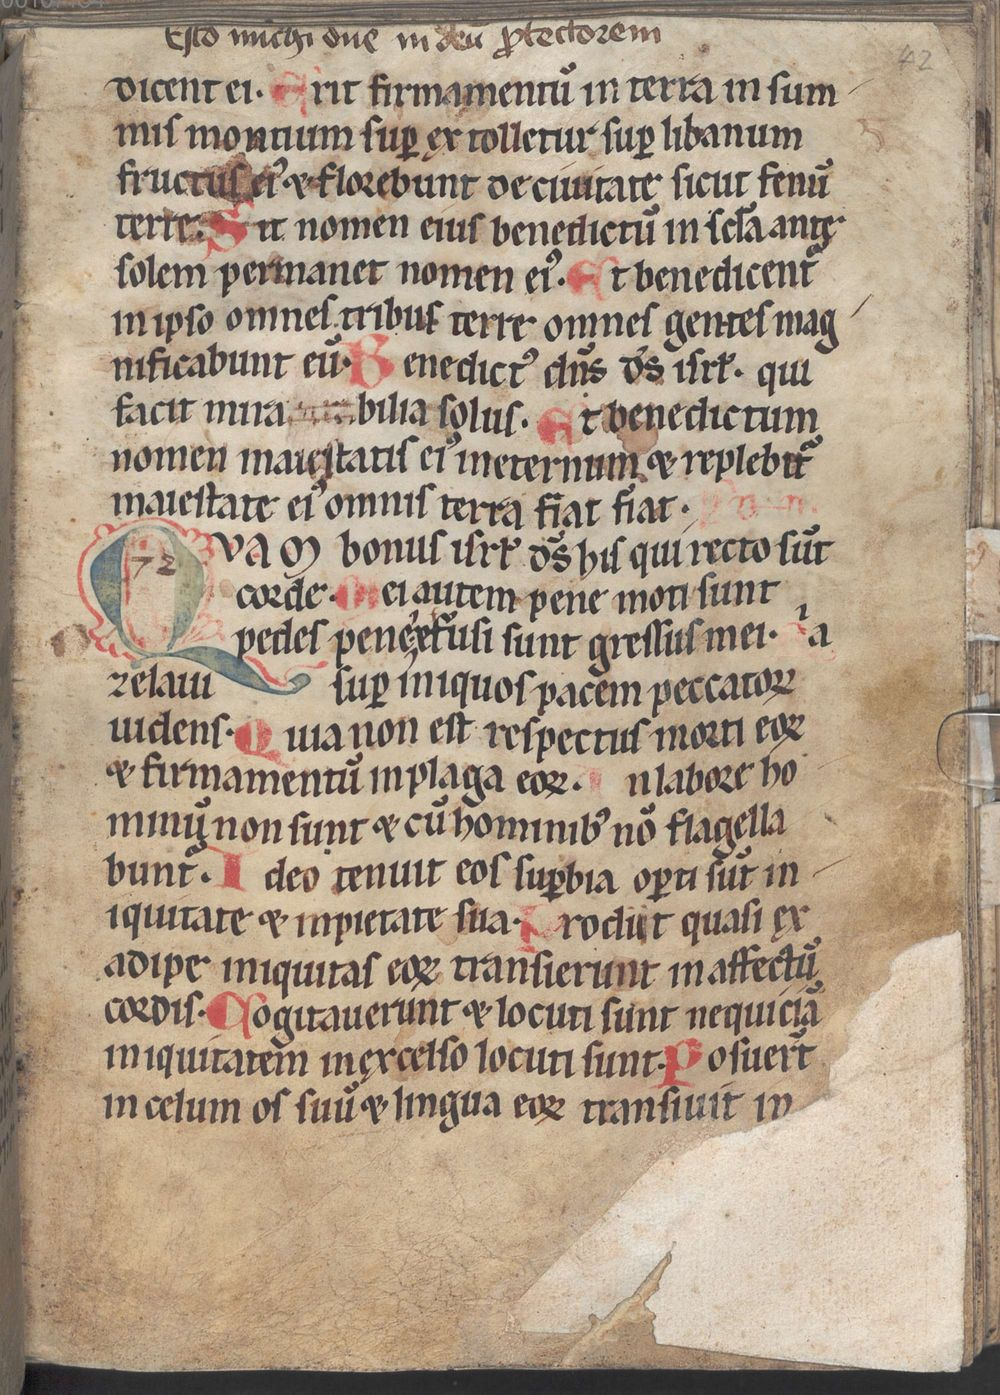 Esto michi dne in deū ꝓtectorem
42
dicent ei. Erit firmamentū in terra in sum
mis montium suꝑ extolletur suꝑ libanum
fructus eiꝰ & florebunt de ciuitate sicut fenū
terre. Sit nomen eius benedictū in scl̄a ante
solem permanet nomen eiꝰ. Et benedicent᷑
in ipso omnes tribus terre omnes gentes mag
nificabunt eū. Benedictꝰ dn̄s ds̄ isrl̄. qui
facit mira bilia solus. Et benedictum
nomen maiestatis eiꝰ in eternum & replebit᷑
maiestate eiꝰ omnis terra fiat fiat.
QVAM bonus isrl̄ ds̄ his qui recto sūt
72
corde. Mei autem pene moti sunt
pedes pene effusi sunt gressus mei. ia
zelaui suꝑ iniquos pacem peccatoꝝ
uidens. Quia non est respectus morti eoꝝ
& firmamentū in plaga eoꝝ. In labore ho
minū non sunt & cū hominibꝰ nō flagella
bunt᷑. Ideo tenuit eos suꝑbia oꝑti sūt in
iquitate & inpietate sua. Prodiit quasi ex
adipe iniquitas eoꝝ transierunt in affectū
cordis. Cogitauerunt & locuti sunt nequiciā
iniquitatem in excelso locuti sunt. Posuer̄t
in celum os suū & lingua eoꝝ transiuit in